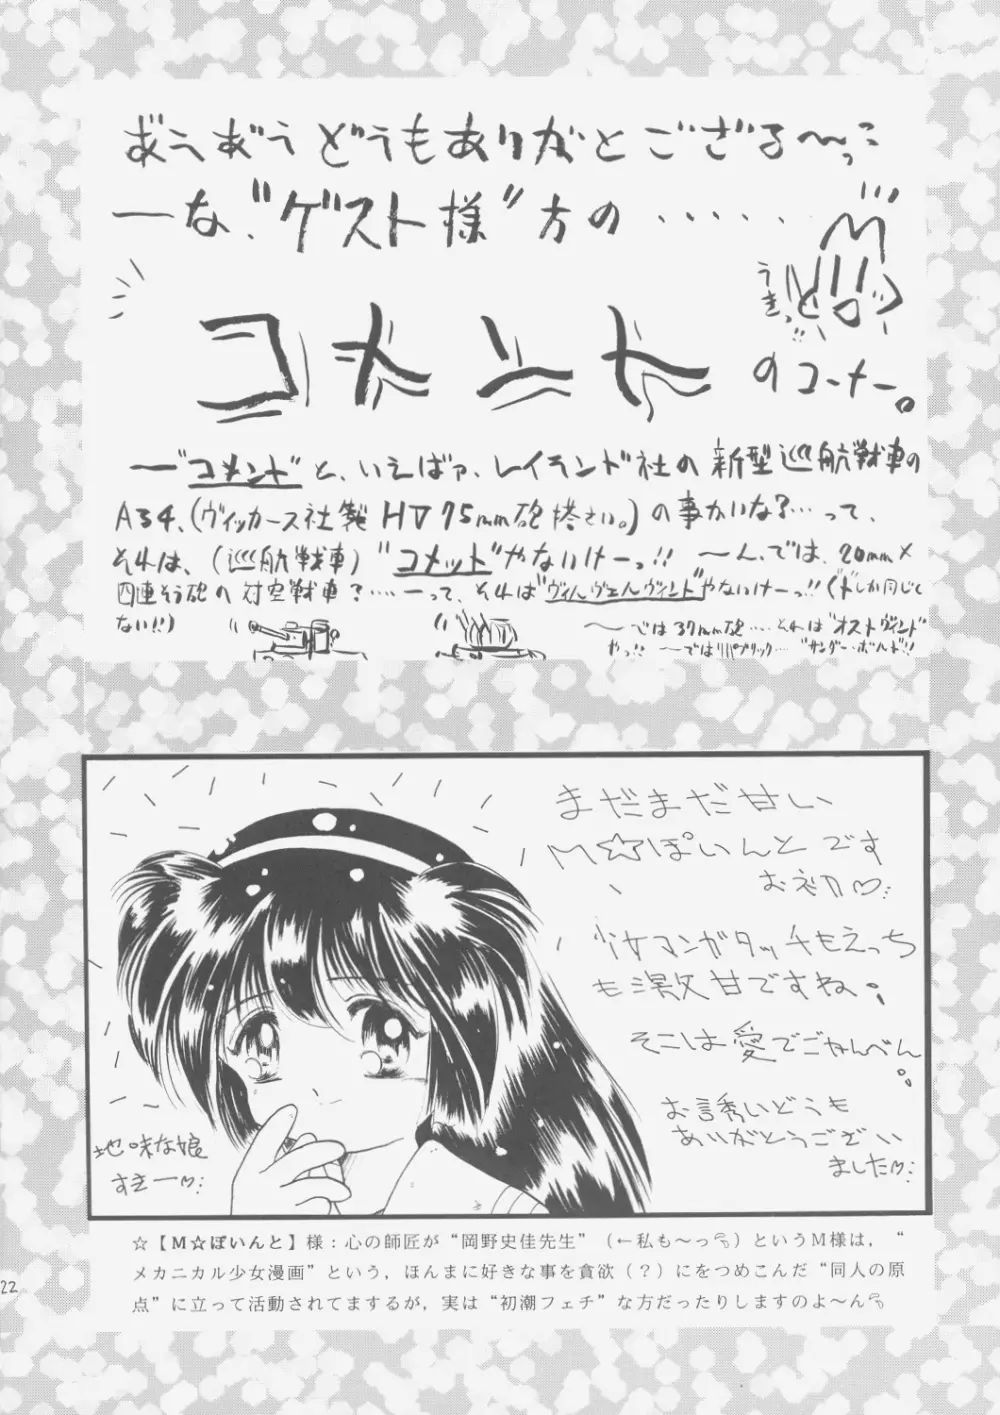 ぎうぎう どうもありがとござる〜っこ
ーな、"ゲスト様"方の・・・・・・
うきっ
コメント
のコーナー。
ー"コメンド"と、いえばァ、レイランド社の新型巡航戦車の
A34、(ヴィッカース社製HV75mm砲搭さい。)の事かいな?…って、
それは、(巡航戦車)"コメット"やないけーっ!! 〜ん、では、20mm×
四連そう砲の対空戦車?……ーって、それは"ヴィルヴェルヴィント"やないけーっ!!(ドしか同じくて
ない!!)
〜では37mm砲……それは"オストヴィンド"
やっ!! 〜ではリパブリック…"サンダーボルド"!!
まだまだ甘い
M☆ぽいんとです
おネカ
少女マンガタッチもえっち
も激甘ですね。
そこは愛でごかんべん。
お誘いどうも
ありがとうござい
ました
地味な娘
すきー
☆【M☆ぽいんと】様：心の師匠が“岡野史佳先生”（←私も〜っ）というM様は，“
メカニカル少女漫画”という，ほんまに好きな事を貪欲（？）にをつめこんだ“同人の原
点”に立って活動されてまするが，実は“初潮フェチ”な方だったりしますのよ〜ん
22